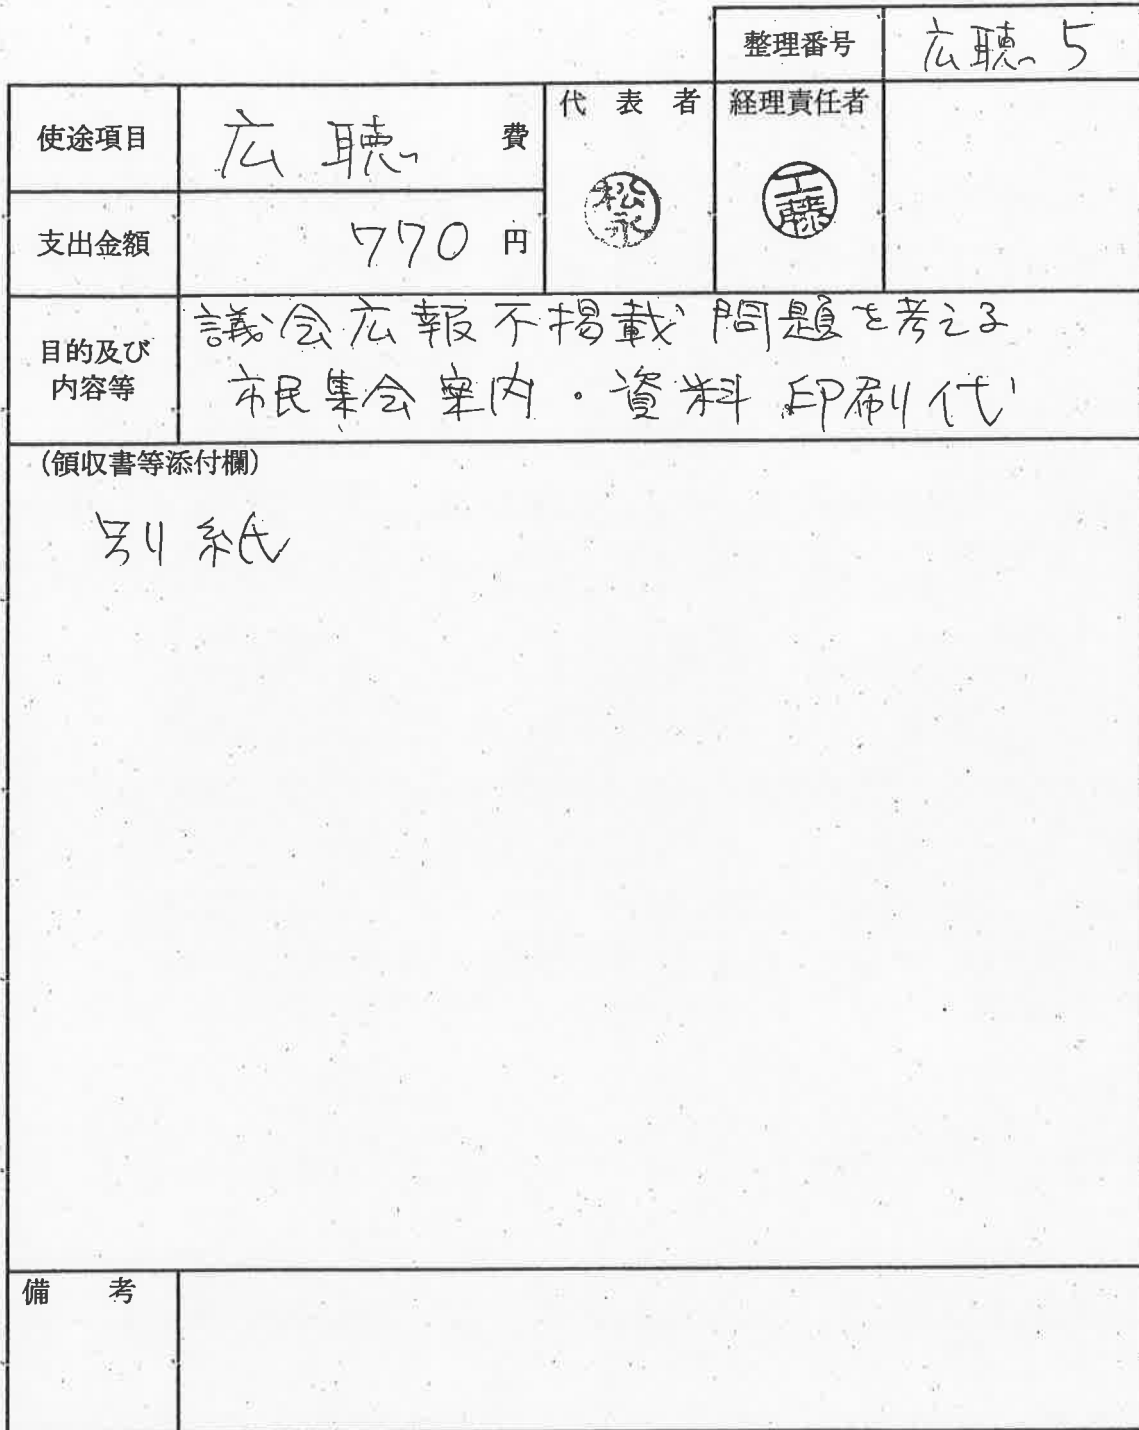 整理番号 広聴5
使途項目 広聴 費
代表者 経理責任者
松永 工藤
支出金額 770 円
目的及び
内容等
議会広報不掲載問題を考える
市民集会案内・資料印刷代
(領収書等添付欄)
別紙
備考